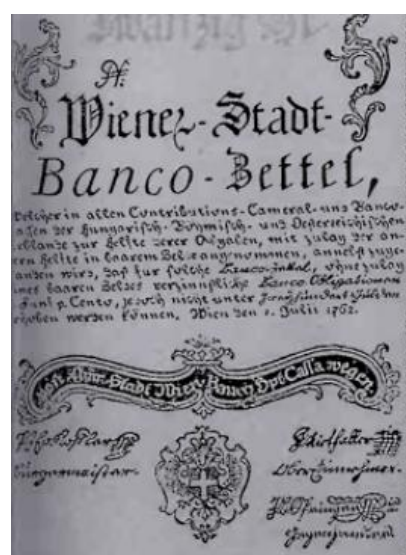 Wiener-Stadt-
Banco-Zettel,
Welcher in allen Contributions-Cameral- und Banco-
assen der Hungarisch-Böhmisch- und Oesterreichischen
rblande zur Helfte derer Abgaben, mit zulag der an-
ern Helfte in baarem Geld angenommen, annebst zuge-
anden wird, daß für solche Banco-Zettel, ohne zulag
ines baaren Geldes verzinnsliche Banco Obligationen
Fünf p. Cento, jedoch nicht unter
rhoben werden können. Wien den 1. Julii 1762.
Stadt Wien Banco Hpt Cassa wegen.